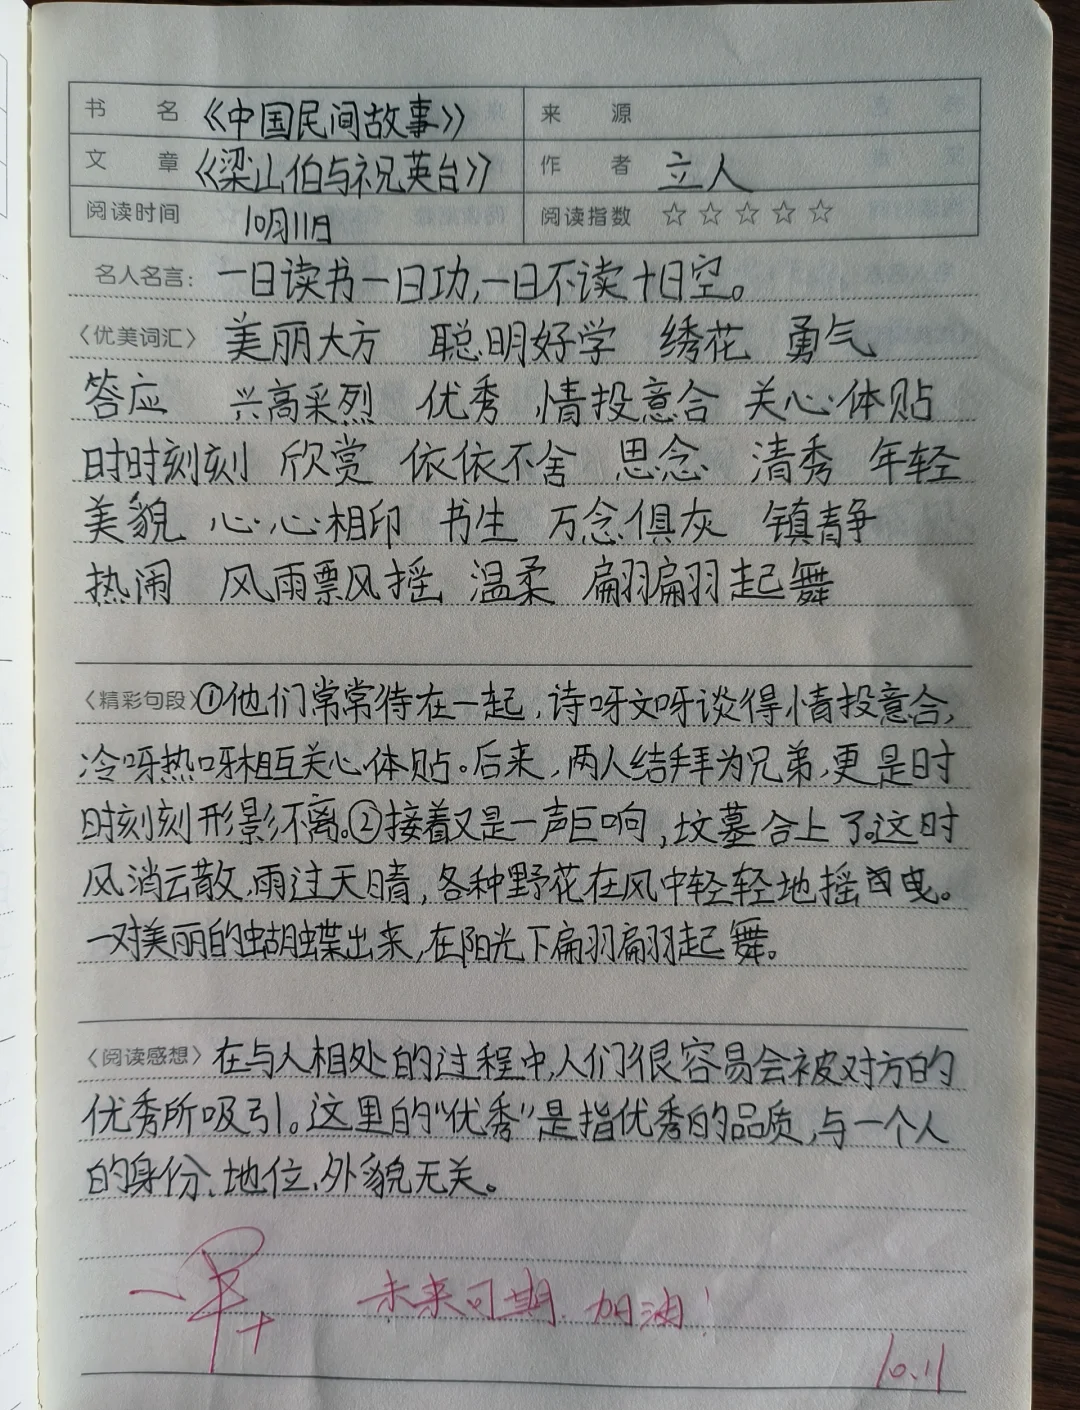 书 名 《中国民间故事》 来 源
文 章 《梁山伯与祝英台》 作 者 立人
阅读时间 10月11日 阅读指数 ☆☆☆☆☆
名人名言: 一日读书一日功,一日不读十日空。
〈优美词汇〉 美丽大方 聪明好学 绣花 勇气
答应 兴高采烈 优秀 情投意合 关心体贴
时时刻刻 欣赏 依依不舍 思念 清秀 年轻
美貌 心心相印 书生 万念俱灰 镇静
热闹 风雨飘摇 温柔 翩翩起舞
〈精彩句段〉①他们常常待在一起,诗呀文呀谈得情投意合,
冷呀热呀相互关心体贴。后来,两人结拜为兄弟,更是时
时刻刻形影不离。②接着又是一声巨响,坟墓合上了。这时
风消云散,雨过天晴,各种野花在风中轻轻地摇曳。
一对美丽的蝴蝶出来,在阳光下翩翩起舞。
〈阅读感想〉在与人相处的过程中,人们很容易会被对方的
优秀所吸引。这里的“优秀”是指优秀的品质,与一个人
的身份、地位、外貌无关。
未来可期.加油!
10.11